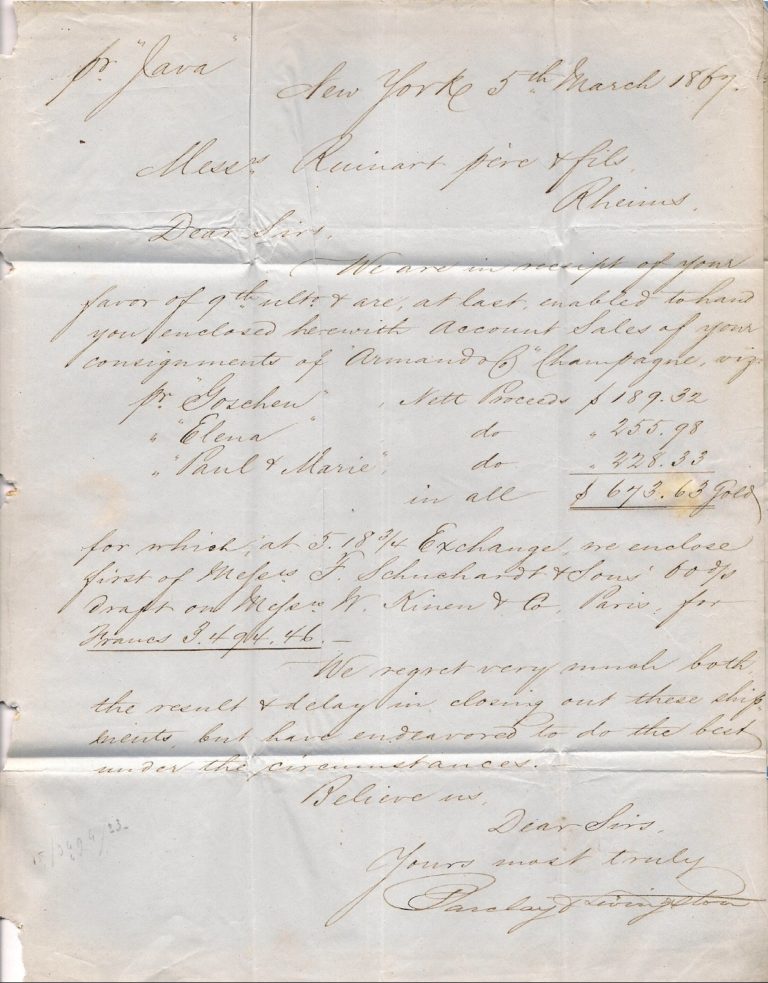 pr "Java"
New York 5th March 1867.
Messrs Ruinart père & fils
Rheims.
Dear Sirs,
We are in receipt of your
favor of 9th ulto & are, at last, enabled to hand
you enclosed herewith Account Sales of your
consignments of "Armand & Co" Champagne, viz:
pr "Goschen" , Nett Proceeds $ 189.32
" "Elena" do " 255.98
" "Paul & Marie", do " 228.33
in all $ 673.63 Gold
for which, at 5.18 3/4 Exchange, we enclose
first of Messrs F. Schuchardt & Sons' 60 d/s
draft on Messrs W. Kinen & Co, Paris, for
Francs 3.494.46.—
We regret very much both
the result & delay in closing out these ship-
ments, but have endeavored to do the best
under the circumstances.—
Believe us,
Dear Sirs,
Yours most truly
Barclay & Livingston